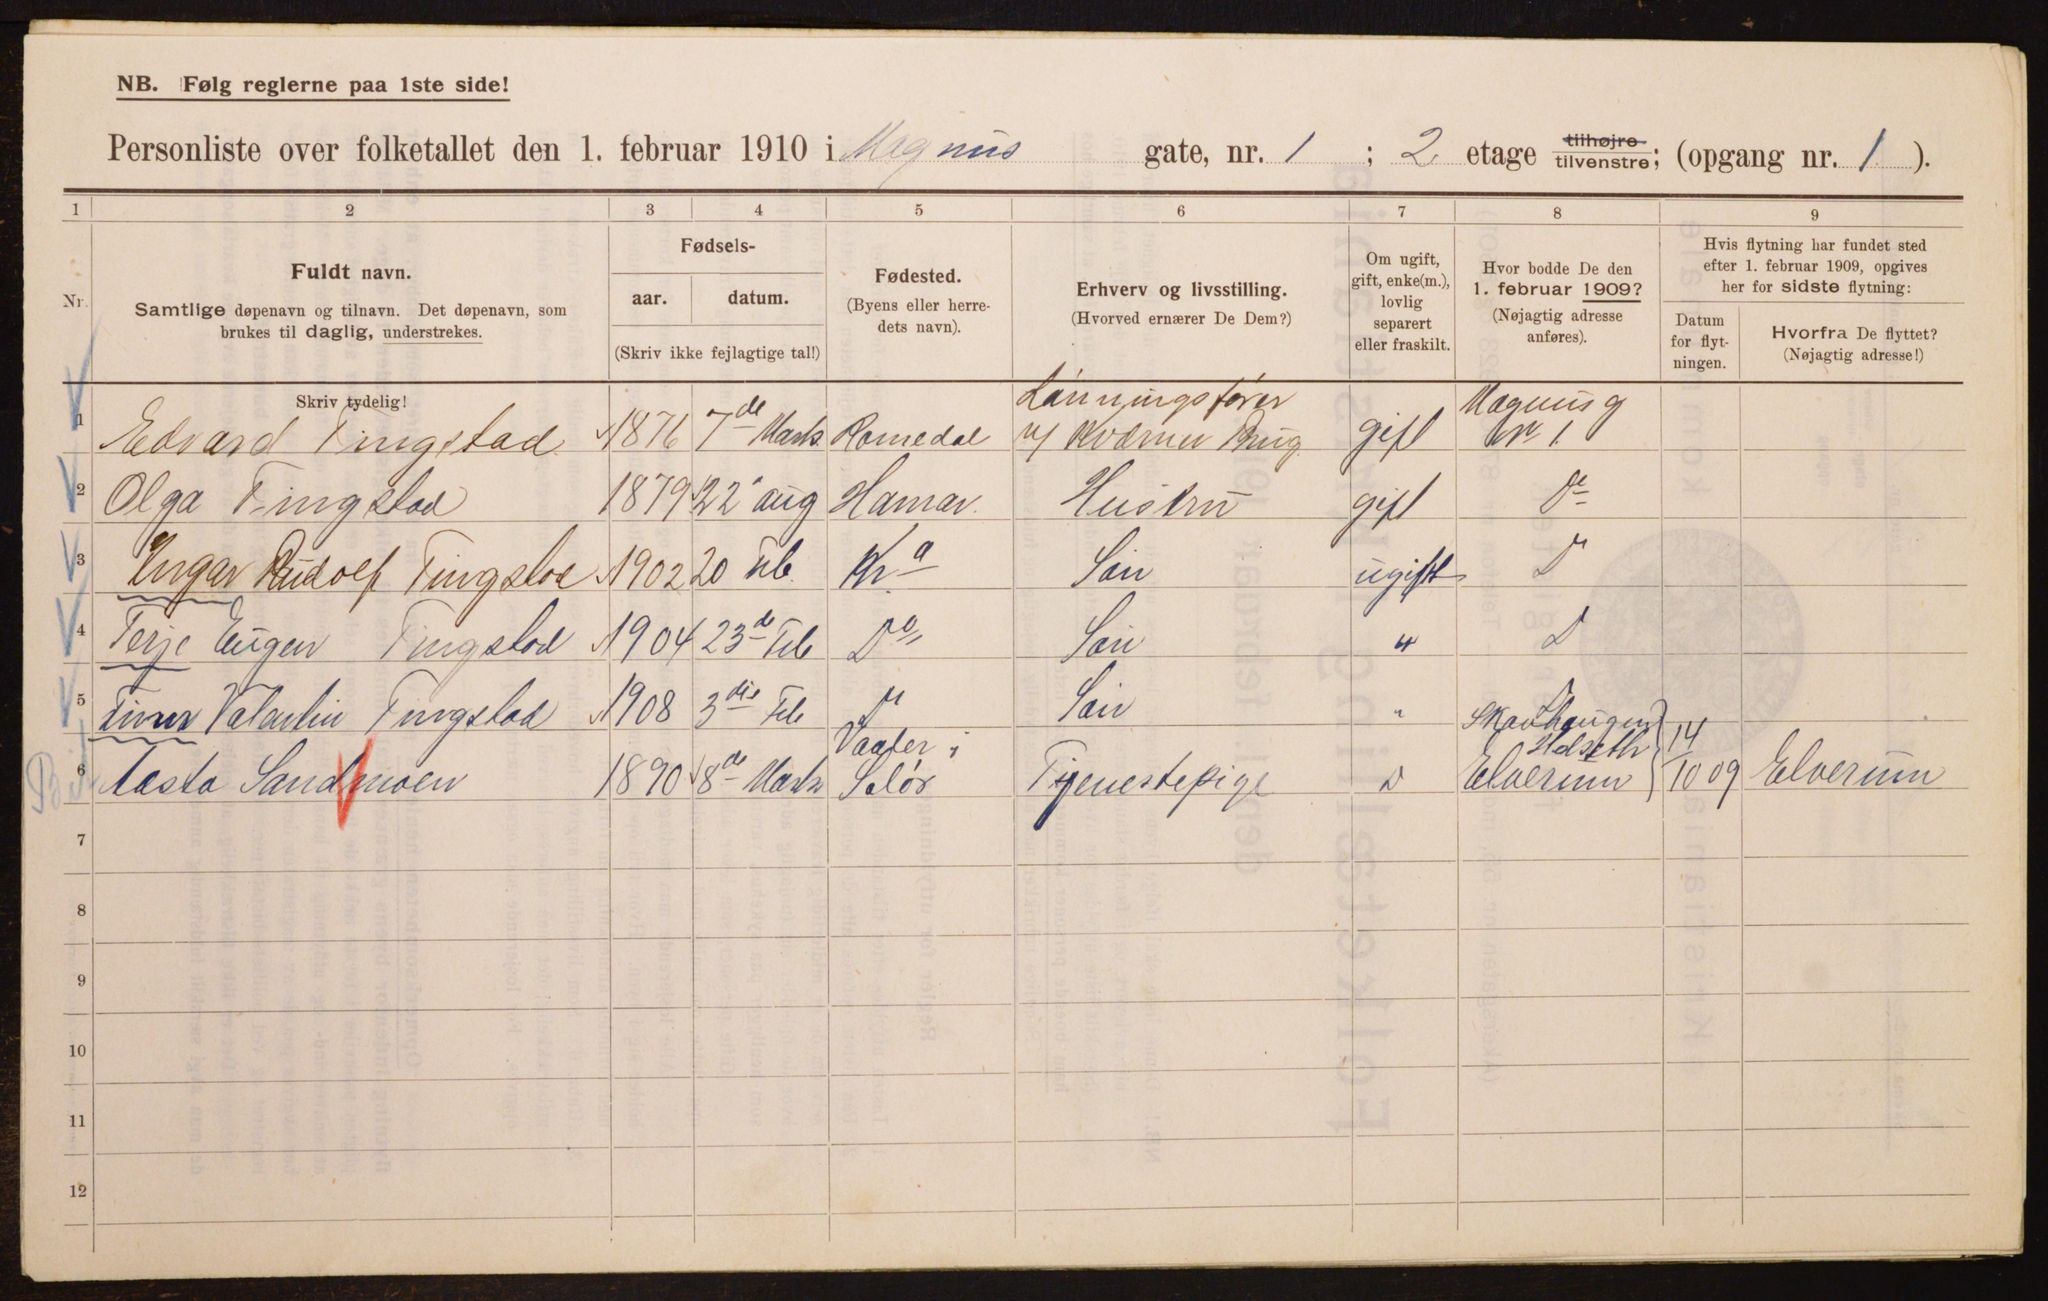 NB. Følg reglerne paa 1ste side!
Personliste over folketallet den 1. februar 1910 i Magnus gate, nr. 1 ; 2 etage tilhøjre tilvenstre; (opgang nr. 1 ).
1 2 3 4 5 6 7 8 9
Nr.
Fuldt navn.
Samtlige døpenavn og tilnavn. Det døpenavn, som
brukes til daglig, understrekes.
Skriv tydelig!
Fødsels-
aar. datum.
(Skriv ikke fejlagtige tal!)
Fødested.
(Byens eller herre-
dets navn).
Erhverv og livsstilling.
(Hvorved ernærer De Dem?)
Om ugift,
gift, enke(m.),
lovlig
separert
eller fraskilt.
Hvor bodde De den
1. februar 1909?
(Nøjagtig adresse
anføres).
Hvis flytning har fundet sted
efter 1. februar 1909, opgives
her for sidste flytning:
Datum
for flyt-
ningen.
Hvorfra De flyttet?
(Nøjagtig adresse!)
1 Edvard Tingstad 1876 7de Marts Romedal Lønningsfører v/ Kværner Brug gift Magnus g nr 1
2 Olga Tingstad 1879 22 aug Hamar Hustru gift Do
3 Ingar Rudolf Tingstad 1902 20 Feb. Kra Søn ugift D
4 Terje Eugen Tingstad 1904 23de Feb Do Søn " D
5 Valentin Tingstad 1908 3die Feb D Søn " D
6 Aasta Sandmoen 1890 8de Marts Vaaler i Solør Tjenestepige D Elverum 14/10 09 Elverum
7
8
9
10
11
12